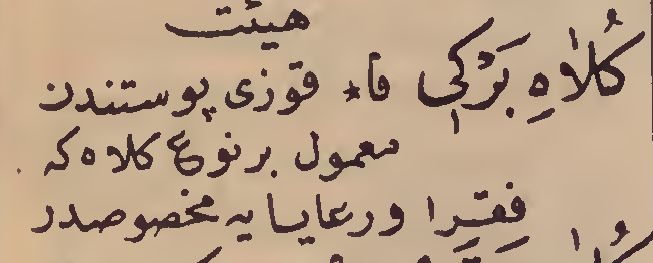 هيئت
كُلاٰهِ بَرْكِى فا* قوزى پوستندن
معمول بر نوع كلاه كه
فِقِرا و رعايايه مخصوصدر